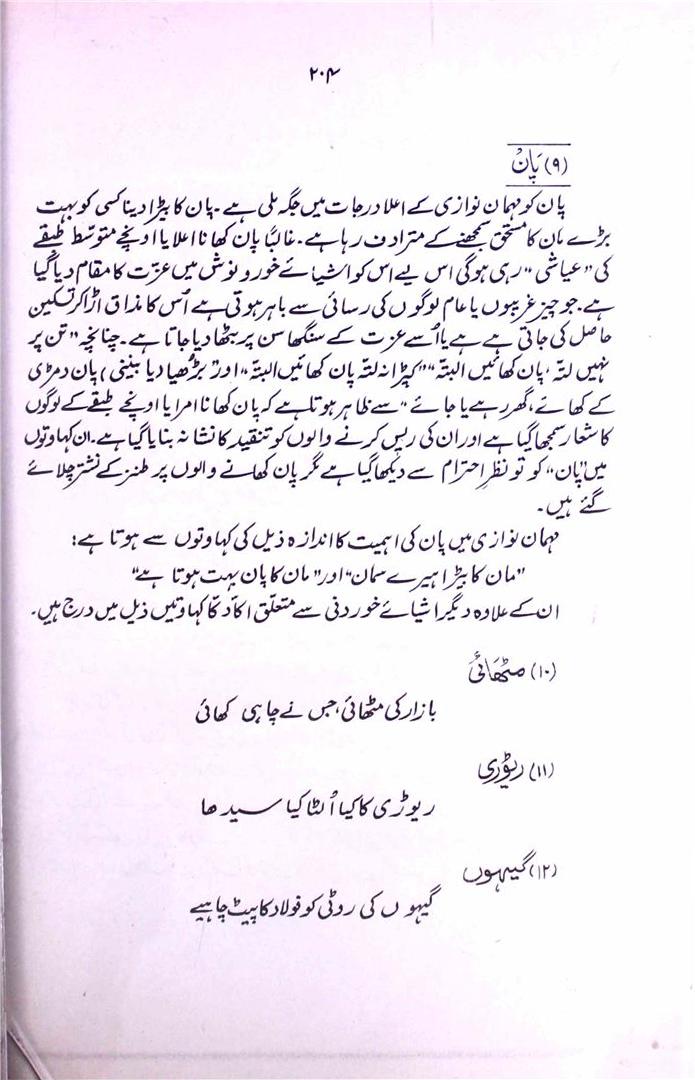 ۲۰۴
(۹) پان
پان کو مہمان نوازی کے اعلا درجات میں جگہ ملی ہے۔ پان کا بیڑا دینا کسی کو بہت
بڑے مان کا مستحق سمجھنے کے مترادف رہا ہے۔ غالباً پان کھانا اعلا یا اونچے متوسط طبقے
کی "عیاشی" رہی ہوگی اس لیے اس کو اشیائے خور و نوش میں عزت کا مقام دیا گیا
ہے۔ جو چیز غریبوں یا عام لوگوں کی رسائی سے باہر ہوتی ہے اُس کا مذاق اڑا کر تسکین
حاصل کی جاتی ہے ہے یا اُسے عزت کے سنگھاسن پر بٹھا دیا جاتا ہے۔ چنانچہ "تن پر
نہیں لتّہ، پان کھائیں البتّہ" "کپڑا نہ لتّہ پان کھائیں البتّہ" اور "بڑھیا دیا بینی) پان دمڑی
کے کھائے، گھر رہے یا جائے" سے ظاہر ہوتا ہے کہ پان کھانا امرا یا اونچے طبقے کے لوگوں
کا شعار سمجھا گیا ہے اور ان کی ریس کرنے والوں کو تنقید کا نشانہ بنایا گیا ہے۔ ان کہاوتوں
میں "پان" کو تو نظرِ احترام سے دیکھا گیا ہے مگر پان کھانے والوں پر طنز کے نشتر چلائے
گئے ہیں۔
مہمان نوازی میں پان کی اہمیت کا اندازہ ذیل کی کہاوتوں سے ہوتا ہے:
"مان کا بیڑا ہیرے سمان" اور "مان کا پان بہت ہوتا ہے"
ان کے علاوہ دیگر اشیائے خوردنی سے متعلق اکّا دکّا کہاوتیں ذیل میں درج ہیں۔
(۱۰) مٹھائی
بازار کی مٹھائی، جس نے چاہی کھائی
(۱۱) ریوڑی
ریوڑی کا کیا اُلٹا کیا سیدھا
(۱۲) گیہوں
گیہوں کی روٹی کو فولاد کا پیٹ چاہیے